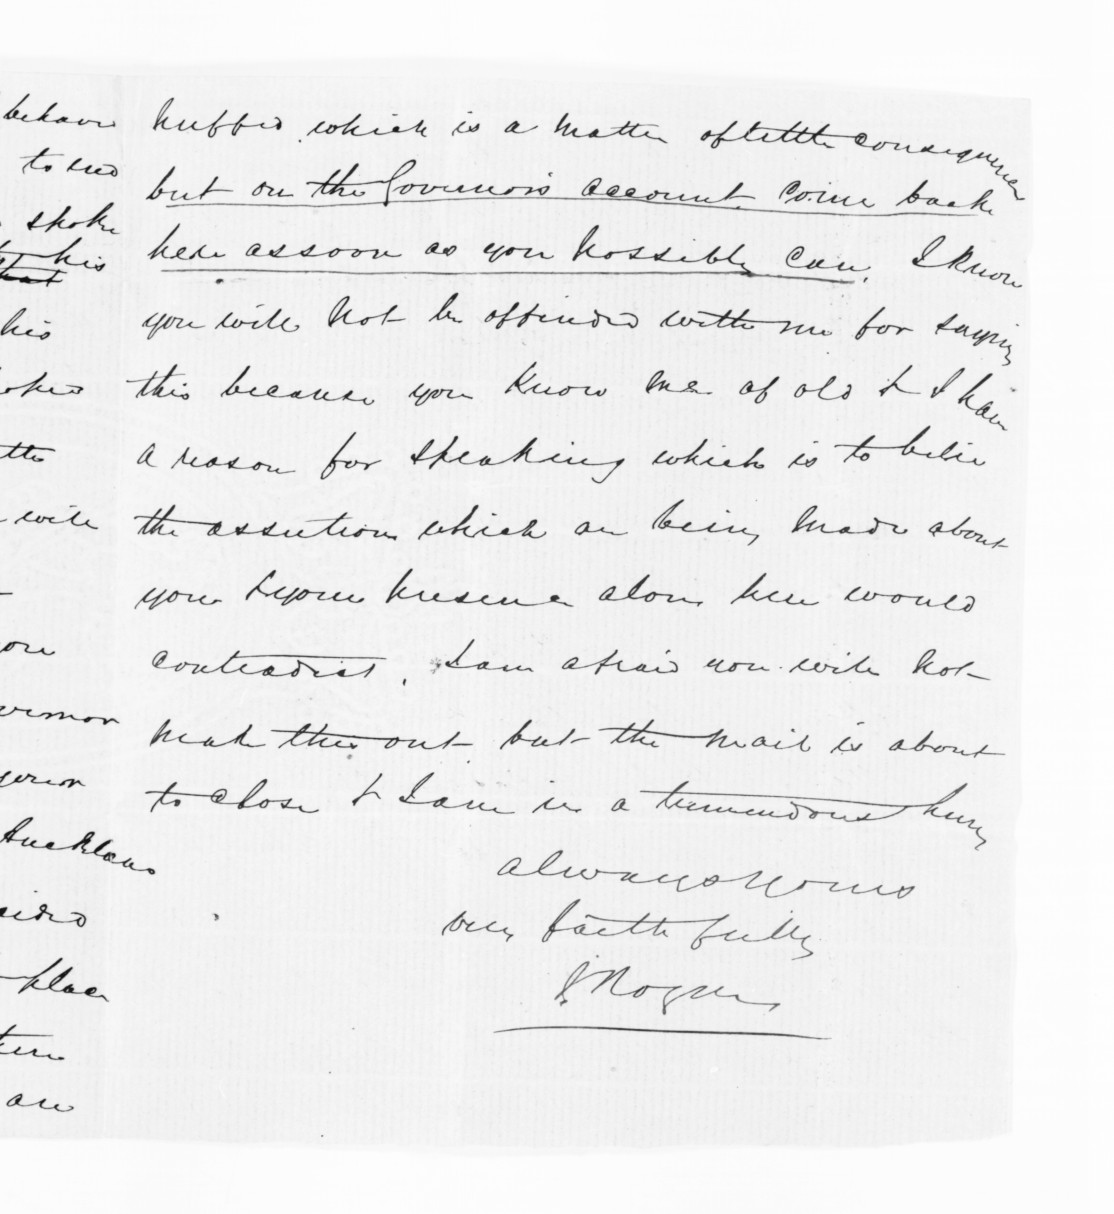 behave
to end
spoke
his
his
will
Auckland
place
are
huffed which is a matter of little consequence
but on the Governors account come back
here as soon as you possibly can. I know
you will not be offended with me for saying
this because you know me of old & I have
a reason for speaking which is to belie
the assertions which are being made about
you & your presence alone here would
contradict. I am afraid you will not
make this out but the mail is about
to close & I am in a tremendous hurry
always yours
very faithfully
J Rogan